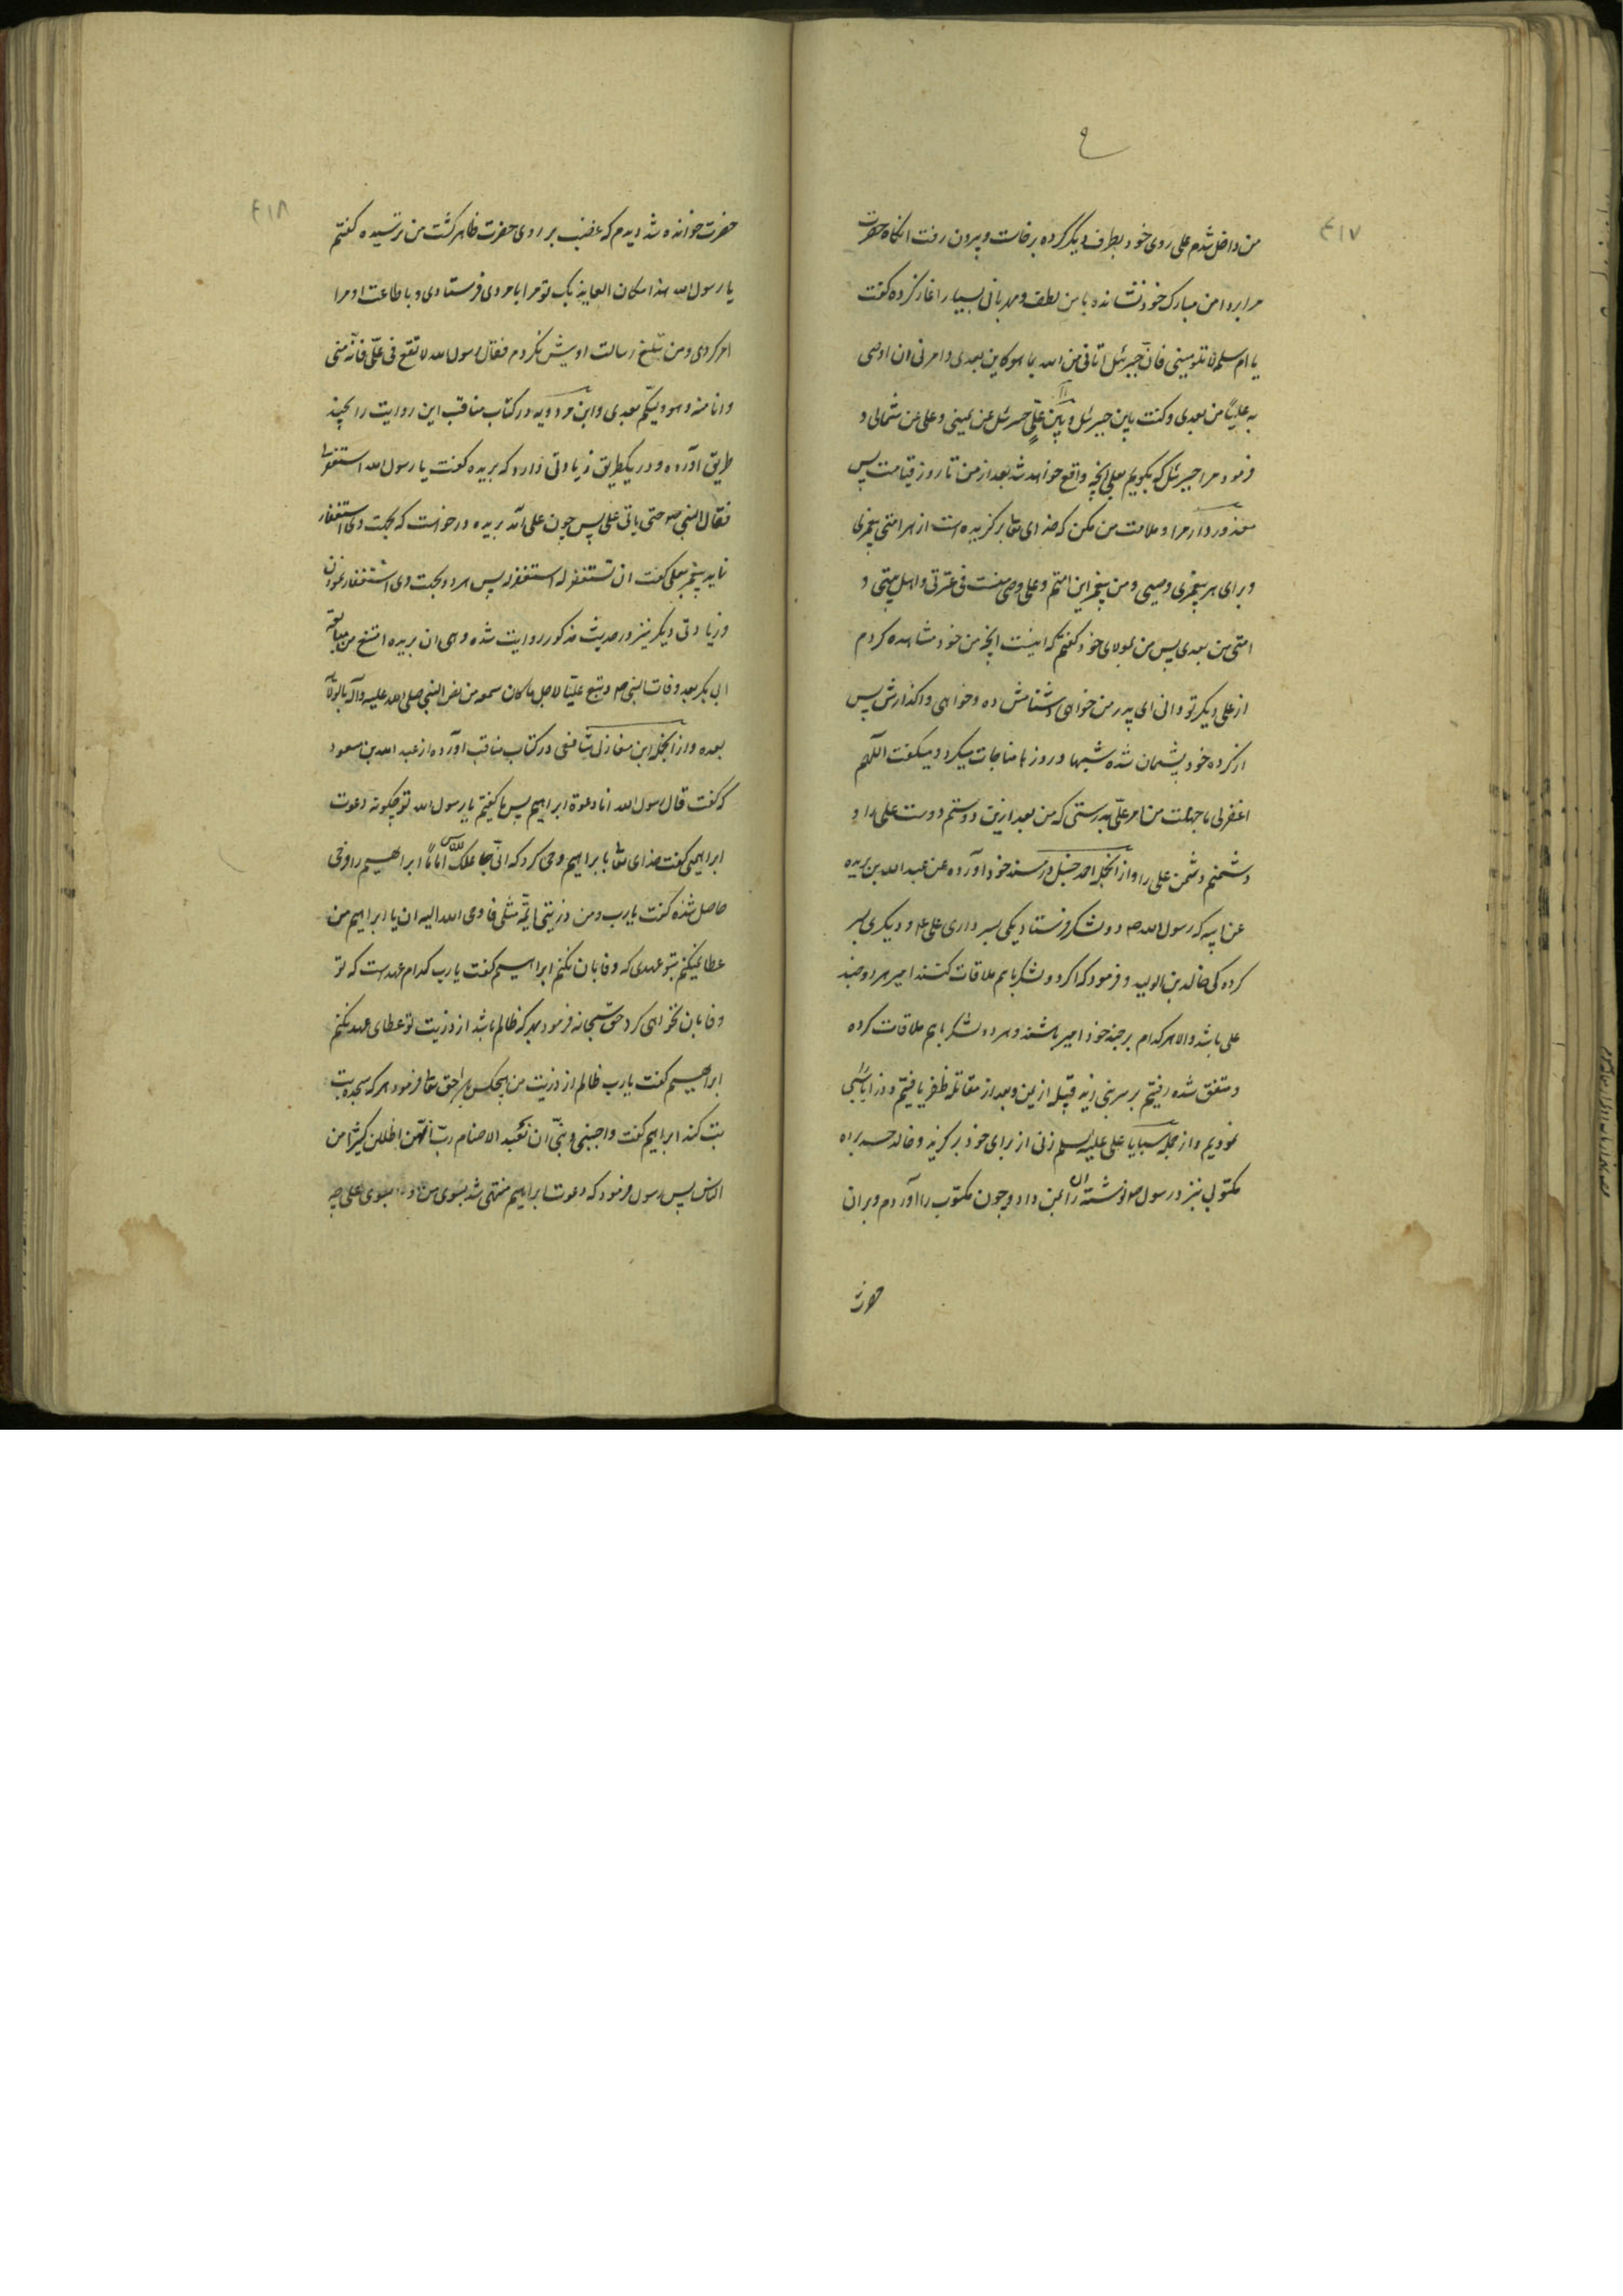 ٤١٧
من داخل شدم علی روی خود بطرف دیگر کرده برخاست و بیرون رفت انگاه حضرت
مرا بر دامن مبارک خود نشانده با من لطف و مهربانی بسیار اغاز کرده گفت
یا ام سلمه لا تلومینی فان جبرئیل اتانی من الله بما هو کاین بعدی و امرنی ان اوصی
به علیاً من بعدی و کنت بین جبرئیل و بین علیٍ جبرئیل عن یمینی و علی عن شمالی و
فرمود مرا جبرئیل که بگویم بعلی آنچه واقع خواهد شد بعد از من تا روز قیامت پس
معذور دار مرا و ملامت من مکن که خدای تعا برگزیده است از هر امتی پیغمبری
و برای هر پیغمبری وصیی و من پیغمبر این امتم و علی وصی منست فی عترتی و اهل بیتی و
امتی من بعدی پس من بمولای خود گفتم که اینست آنچه من خود مشاهده کردم
از علی دیگر تو دانی ای پدر من خواهی دشنامش ده و خواهی واگذارش پس
از کرده خود پشیمان شده شبها و روزها مناجات میکرد و میگفت اللهم
اغفر لی ما جهلت من امر علیّ بدرستی که من بعد ازین دوستم دوست علی را و
دشمنم دشمن علی را و از انجمله احمد حنبل در مسند خود آورده عن عبد الله بن بریده
عن ابیه که رسول الله ص دو لشکر فرستاد یکی بسرداری علی ع و دیگری بسر
کرده کی خالد بن الولید و فرمود که اگر دو لشکر با هم ملاقات کنند امیر هر دو جند
علی باشد و الا هر کدام بر جند خود امیر باشند و هر دو لشکر با هم ملاقات کرده
و متفق شده رفتیم بر سر بنی زید قبیله از یمن و بعد از مقاتله ظفر یافتیم و
نمودیم و از جمله سبایا علی علیه السلم زنی از برای خود برگزید و خالد حسد برده
مکتوبی نبزد رسول ص نوشته آن را بمن داد و چون مکتوب را آوردم و بر ان
حضرت
٤١٨
حضرت خوانده شد دیدم که غضب بر روی حضرت ظاهر گشت من ترسیده گفتم
یا رسول الله هذا مکان العایذ بک تو مرا با مردی فرستادی و با طاعت او مرا
امر کردی و من تبلیغ رسالت او بیش نکردم فقال رسول الله لا تقع فی علیّ فانّه منی
و انا منه و هو ولیکم بعدی و ابن مردویه در کتاب مناقب این روایت را بچند
طریق آورده و در یکطریق زیادتی دارد که بریده گفت یا رسول الله استغفر لی
فقال النبی ص حتی یاتی علی پس چون علی آمد بریده درخواست که بجهت وی استغفار
نماید پیغمبر بعلی گفت ان تستغفر له استغفر له پس هر دو بجهت وی استغفار نمودند
و زیادتی دیگر نیز در حدیث مذکور روایت شده و هی ان بریده امتنع من مبایعة
ابی بکر بعد وفات النبی ص و تبع علیّا لاجل ما کان سمعه من نص النبی صلی الله علیه و آله بالولایة
بعده و از انجمله ابن مغازلی شافعی در کتاب مناقب آورده از عبد الله بن مسعود
که گفت قال رسول الله انا دعوة ابراهیم پس ما گفتیم یا رسول الله تو چگونه دعوت
ابراهیمی گفت خدای تعا بابراهیم وحی کرد که انّی جاعلک للناس اماماً ابراهیم را فرحی
حاصل شده گفت یا رب و من ذریتی ایمّة مثلی فاوحی الله الیه ان یا ابراهیم من
عطا نمیکنم بتو عهدی که وفا بان نکنم ابراهیم گفت یا رب کدام عهد است که تو
وفا بان نخواهی کرد حق سبحانه فرمود بهر که ظالم باشد از ذریت تو عطای عهد نکنم
ابراهیم گفت یا رب ظالم از ذریت من حق تعا فرمود هر که سجده بت
بت کند ابراهیم گفت و اجنبنی و بنیّ ان نعبد الاصنام ربّ انهنّ اضللن کثیرا من
الناس پس رسول فرمود که دعوت ابراهیم منتهی شد بسوی من و بسوی علی چه